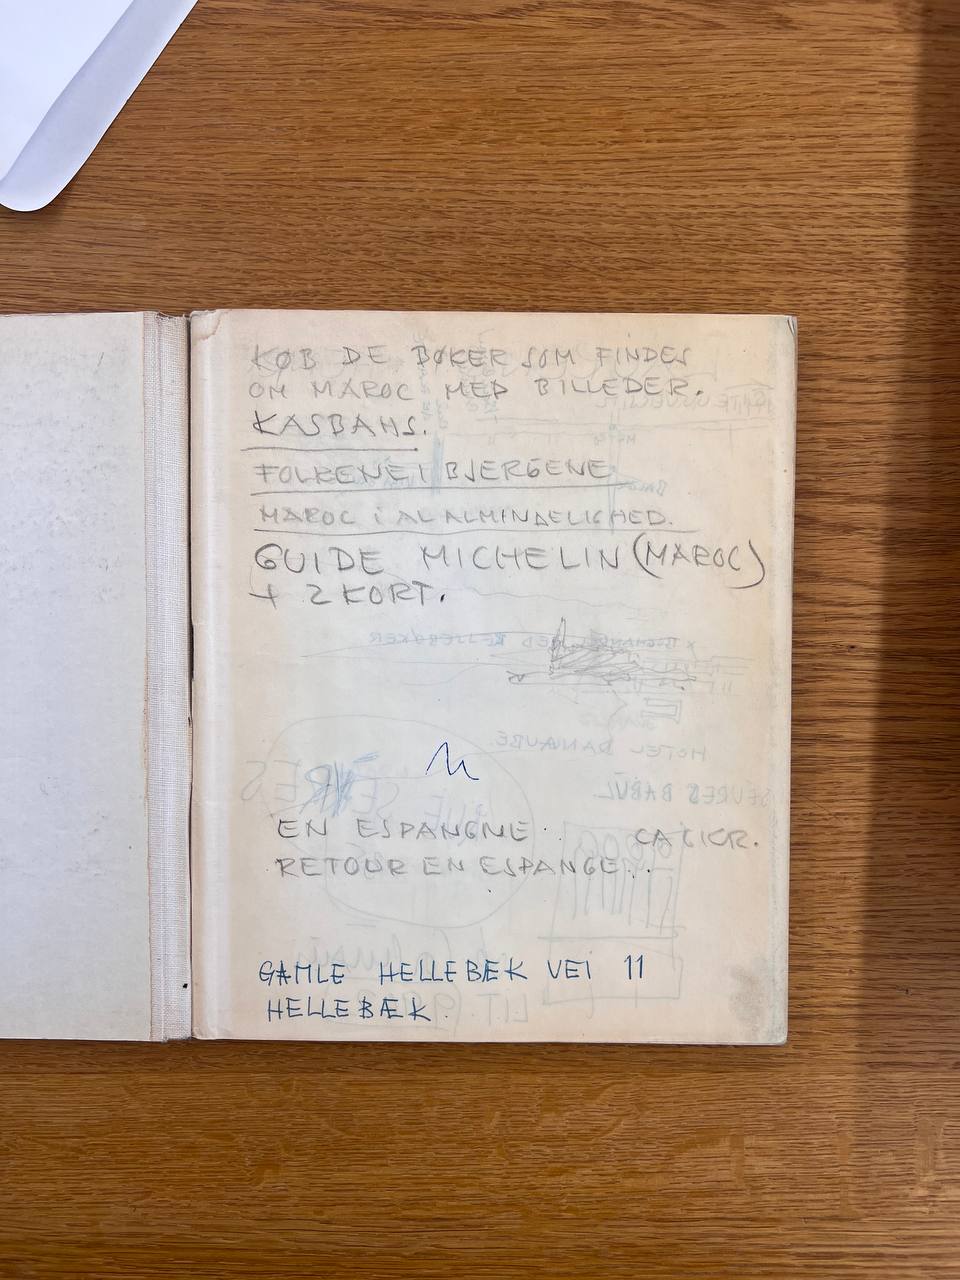 KØB DE BØKER SOM FINDES
OM MAROC MED BILLEDER.
KASBAHS.
FOLKENE I BJERGENE
MAROC i AL ALMINDELIGHED.
GUIDE MICHELIN (MAROC)
+ 2 KORT.
EN ESPANGNE ..
RETOUR EN ESPANGE ..
GAMLE HELLEBÆK VEI 11
HELLEBÆK.